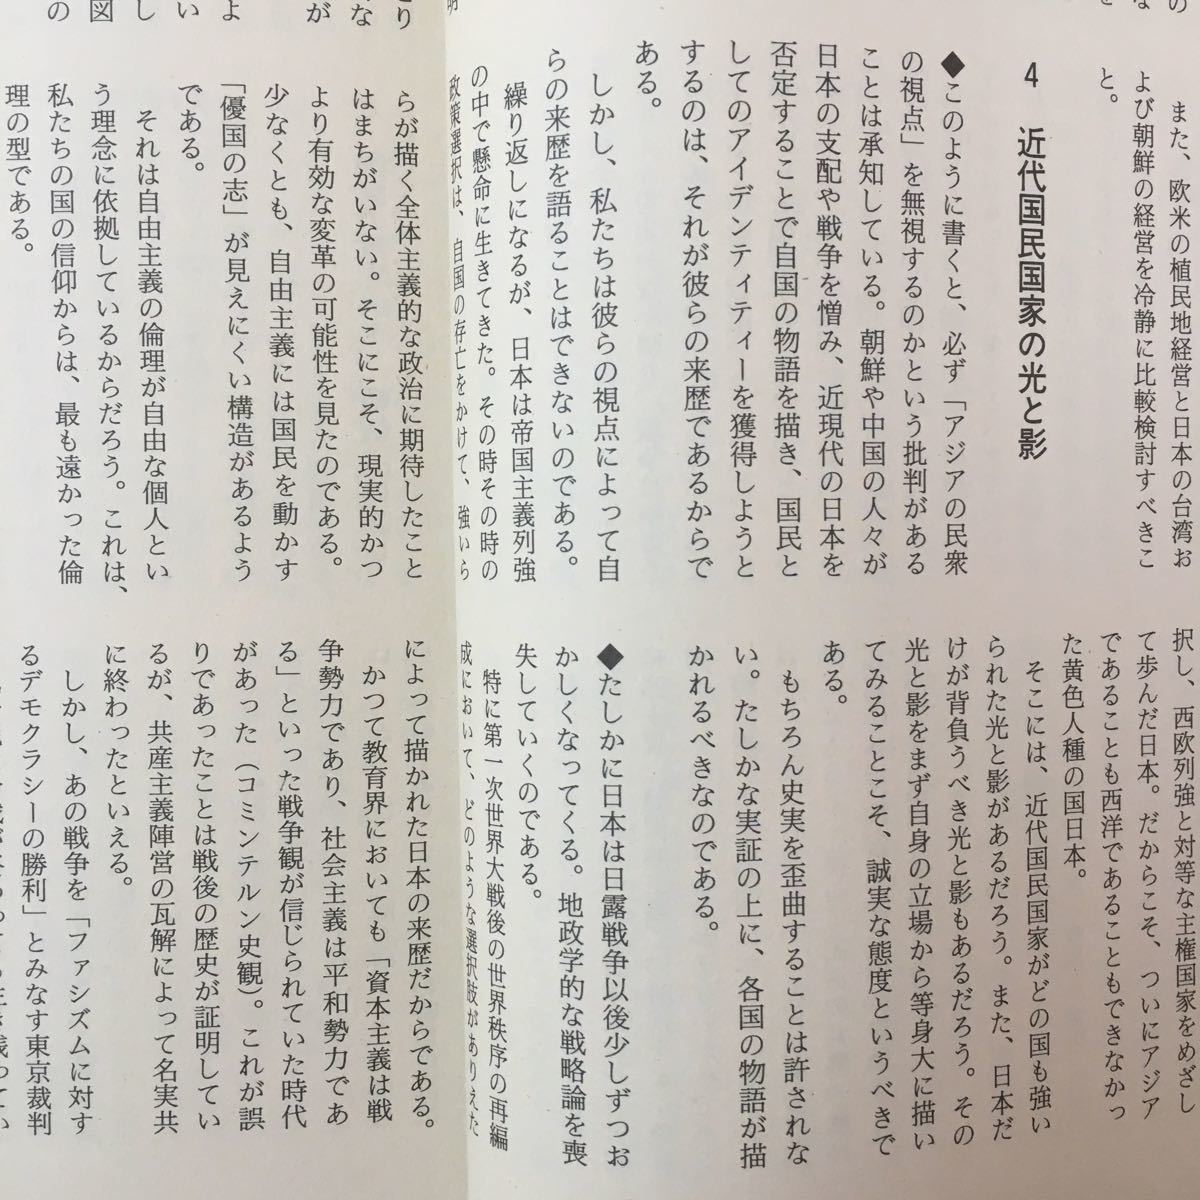 また、欧米の植民地経営と日本の台湾お
よび朝鮮の経営を冷静に比較検討すべきこ
と。
4 近代国民国家の光と影
◆このように書くと、必ず「アジアの民衆
の視点」を無視するのかという批判がある
ことは承知している。朝鮮や中国の人々が
日本の支配や戦争を憎み、近現代の日本を
否定することで自国の物語を描き、国民と
してのアイデンティティーを獲得しようと
するのは、それが彼らの来歴であるからで
ある。
しかし、私たちは彼らの視点によって自
らの来歴を語ることはできないのである。
繰り返しになるが、日本は帝国主義列強
の中で懸命に生きてきた。その時その時の
政策選択は、自国の存亡をかけて、強いら
択し、西欧列強と対等な主権国家をめざし
て歩んだ日本。だからこそ、ついにアジア
であることも西洋であることもできなかっ
た黄色人種の国日本。
そこには、近代国民国家がどの国も強い
られた光と影があるだろう。また、日本だ
けが背負うべき光と影もあるだろう。その
光と影をまず自身の立場から等身大に描い
てみることこそ、誠実な態度というべきで
ある。
もちろん史実を歪曲することは許されな
い。たしかな実証の上に、各国の物語が描
かれるべきなのである。
◆たしかに日本は日露戦争以後少しずつお
かしくなってくる。地政学的な戦略論を喪
失していくのである。
特に第一次世界大戦後の世界秩序の再編
成において、どのような選択肢がありえた
らが描く全体主義的な政治に期待したこと
はまちがいない。そこにこそ、現実的かつ
より有効な変革の可能性を見たのである。
少なくとも、自由主義には国民を動かす
「優国の志」が見えにくい構造があるよう
である。
それは自由主義の倫理が自由な個人とい
う理念に依拠しているからだろう。これは、
私たちの国の信仰からは、最も遠かった倫
理の型である。
によって描かれた日本の来歴だからである。
かつて教育界においても「資本主義は戦
争勢力であり、社会主義は平和勢力であ
る」といった戦争観が信じられていた時代
があった（コミンテルン史観）。これが誤
りであったことは戦後の歴史が証明してい
るが、共産主義陣営の瓦解によって名実共
に終わったといえる。
しかし、あの戦争を「ファシズムに対す
るデモクラシーの勝利」とみなす東京裁判